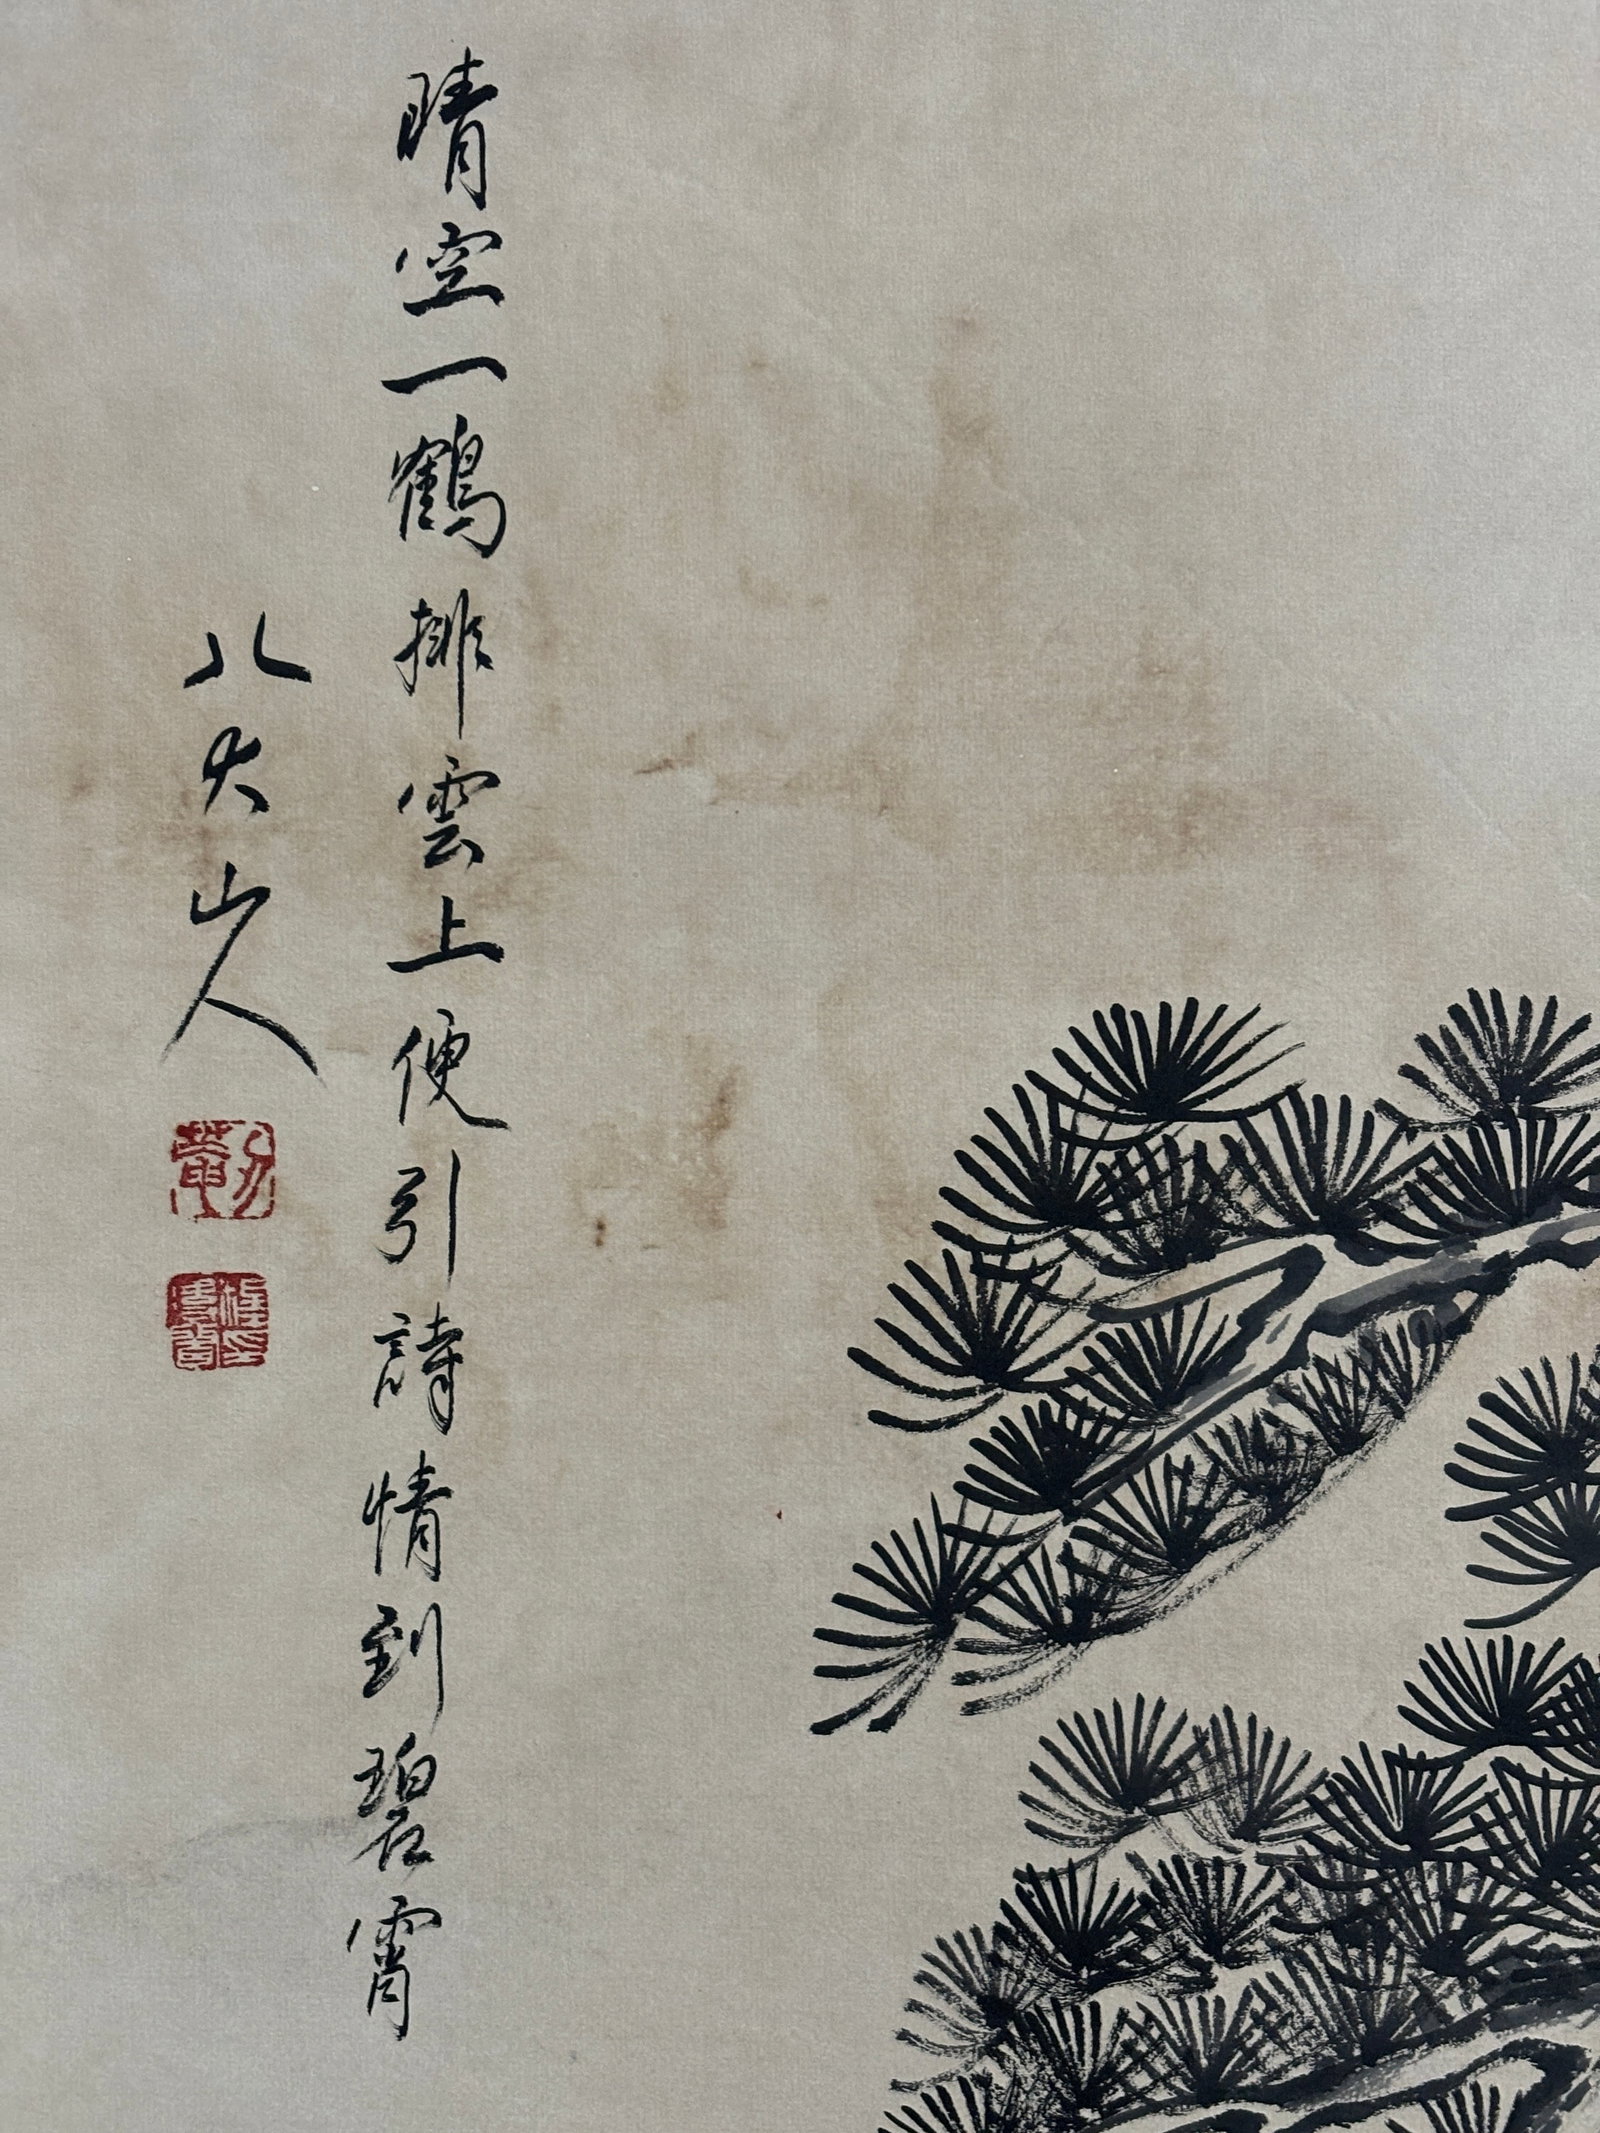 晴空一鶴排雲上便引詩情到碧霄
八大山人